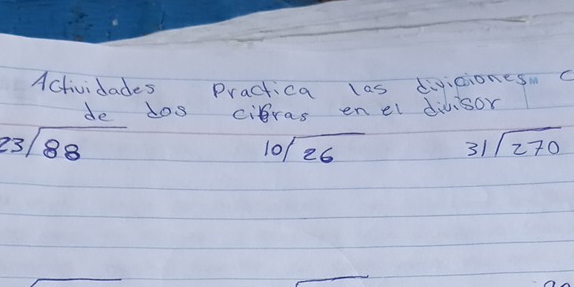 Actividades Practica las diviciones c
de dos cifras en el divisor
23/88 10/26 31/270